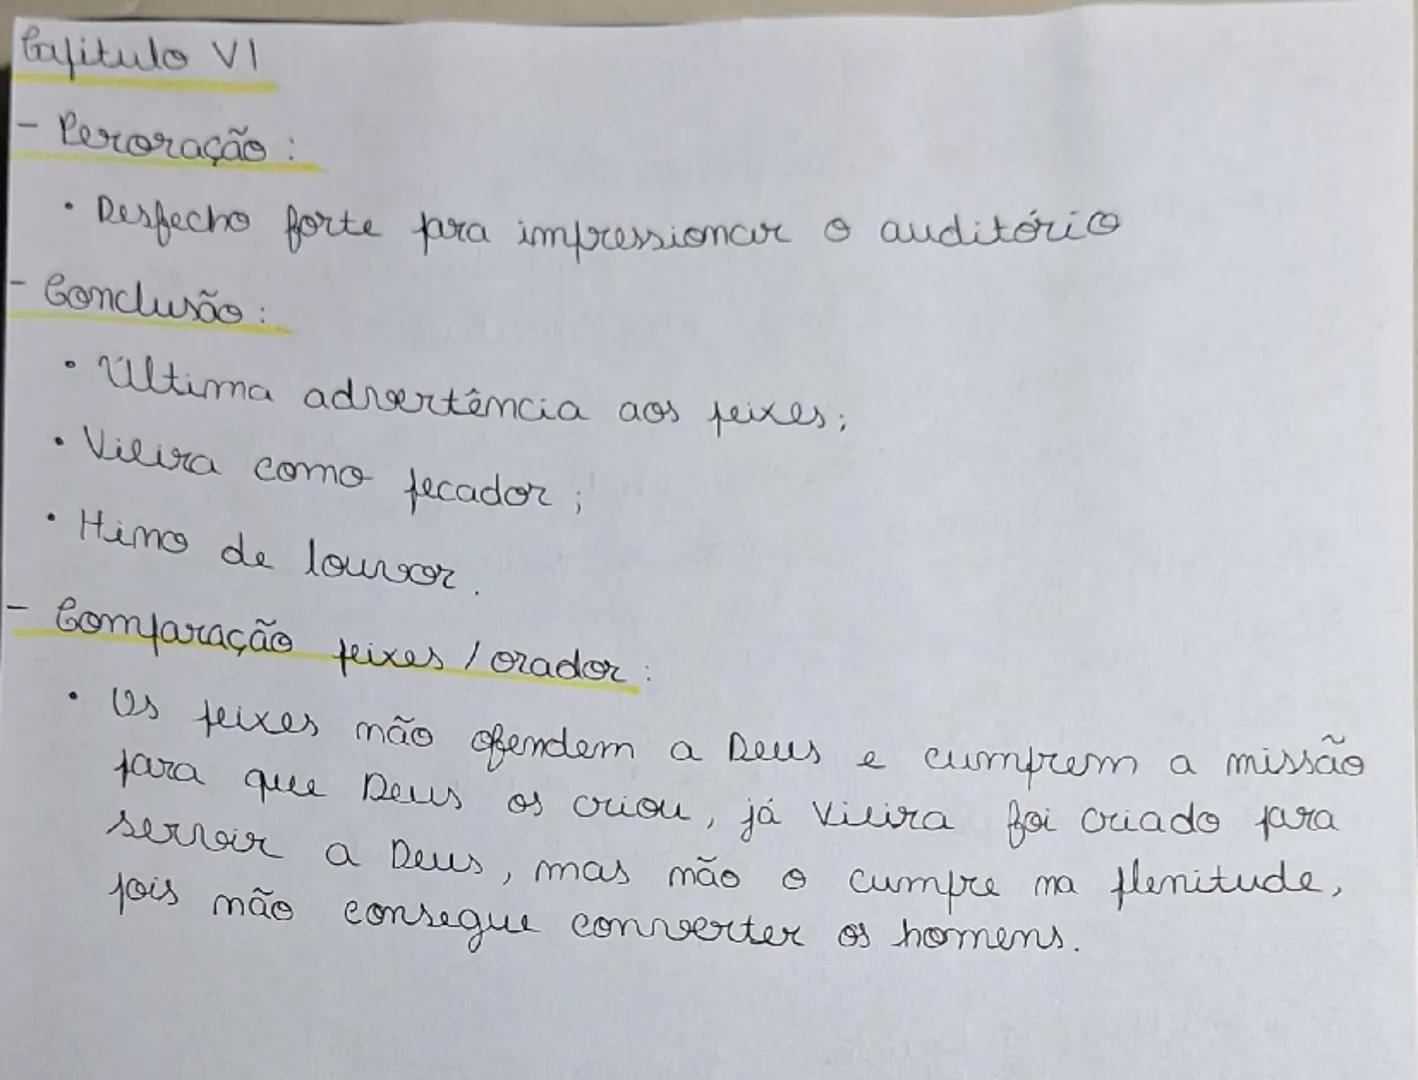 Capítulo VI
- Peroração:
• Desfecho forte para impressionar o auditório
- Conclusão:
• Última advertência aos peixes;
• Vieira como pecador;
• Hino de louvor.
- Comparação peixes / orador:
• Os peixes não ofendem a Deus e cumprem a missão
para que Deus os criou, já Vieira foi criado para
servir a Deus, mas não o cumpre na plenitude,
pois não consegue converter os homens.